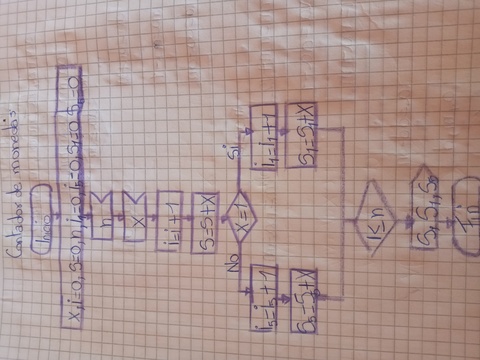 Contador de monedas
Inicio
x, i=0, s=0, n, i₁=0, i₅=0, s₁=0 s₅=0
n
x
i=i+1
s=s+x
No
x=1
Si
i₅=i₅+1
i₁=i₁+1
S₅=S₅+x
S₁=S₁+x
i≤n
S, S₁, S₅
Fin